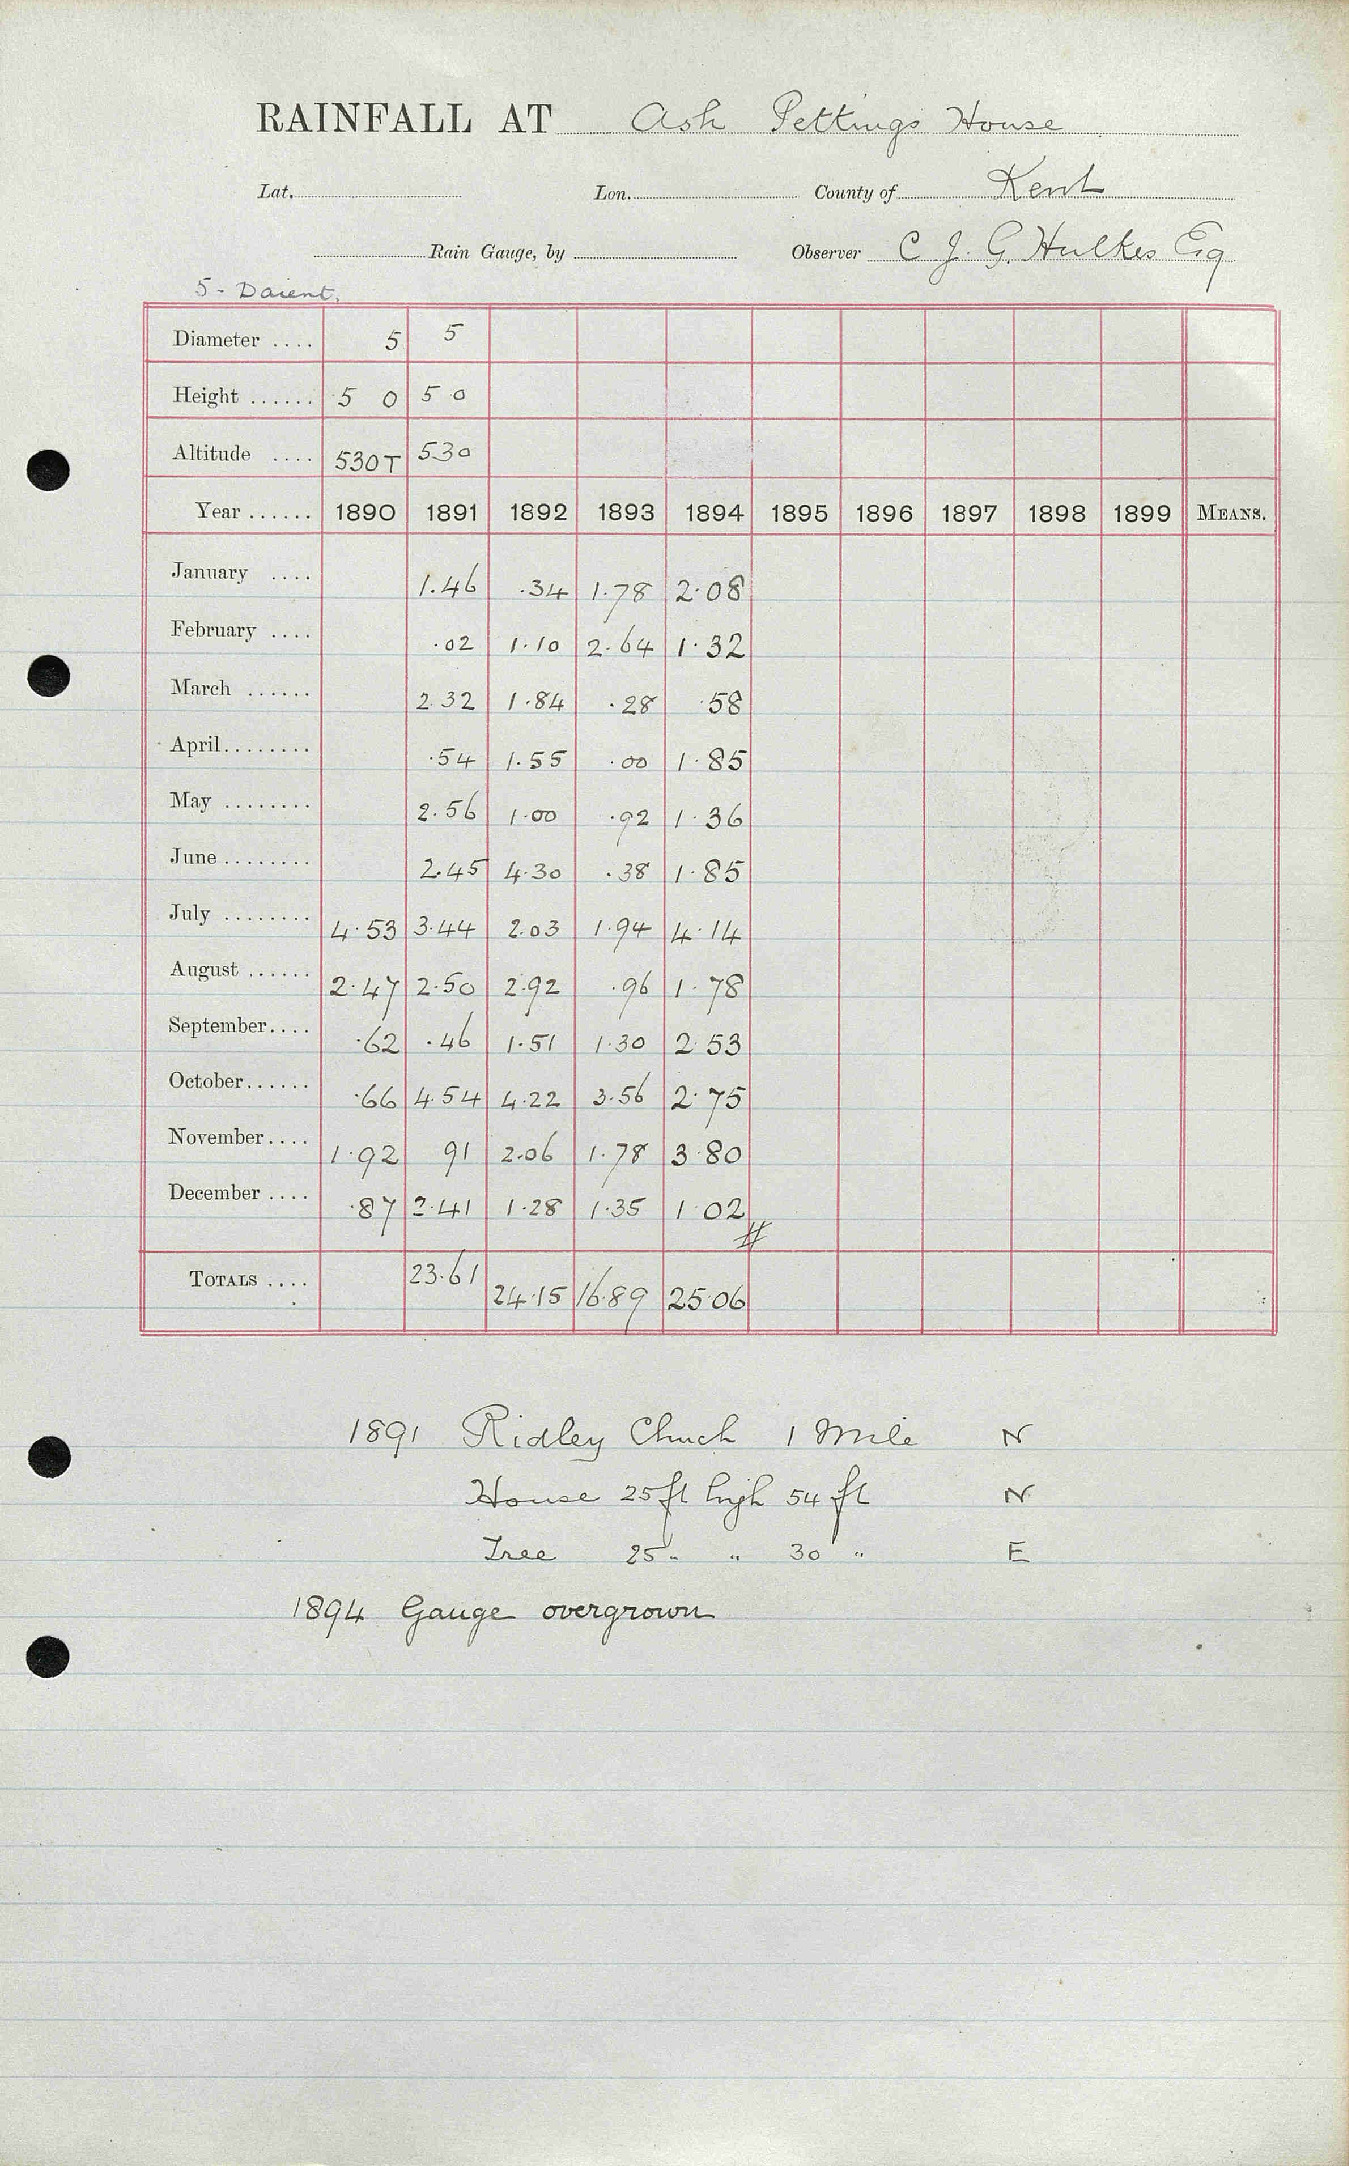 RAINFALL AT Ash Pettings House
Lat. Lon. County of Kent
Rain Gauge, by Observer C J. G. Hulkes Esq
5 - Darent.
Diameter .... 5 5
Height ...... 5 0 5 0
Altitude .... 530T 530
Year ...... 1890 1891 1892 1893 1894 1895 1896 1897 1898 1899 MEANS.
January .... 1.46 .34 1.78 2.08
February .... .02 1.10 2.64 1.32
March ...... 2.32 1.84 .28 .58
April........ .54 1.55 .00 1.85
May ........ 2.56 1.00 .92 1.36
June ........ 2.45 4.30 .38 1.85
July ........ 4.53 3.44 2.03 1.94 4.14
August ...... 2.47 2.50 2.92 .96 1.78
September.... .62 .46 1.51 1.30 2.53
October...... .66 4.54 4.22 3.56 2.75
November.... 1.92 91 2.06 1.78 3.80
December .... .87 2.41 1.28 1.35 1.02 #
TOTALS .... 23.61 24.15 16.89 25.06
1891 Ridley Chuch 1 Mile N
House 25 ft high 54 ft N
Tree 25 " " 30 " E
1894 Gauge overgrown